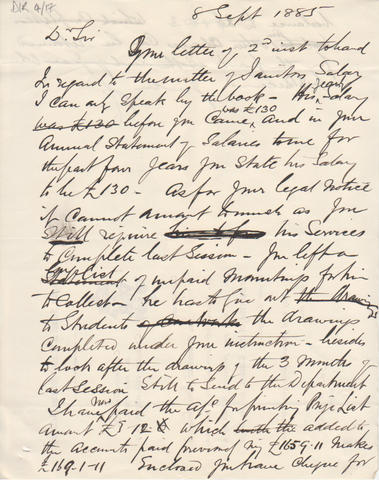 DIR 4/17
8 Sept 1885
Dr Sir
Your letter of 2d inst to hand
In regard to the matter of Janitors Salary
I can only speak by the book – this years salary
was £130
was £130 before you came, and in your
Annual Statement of Salaries to me for
the past four years you State his Salary
to be £130 – As for your legal Notice
it cannot amount to much as you
Still require his Services
to Complete last Session – You left a
list
Statement of unpaid to him
to Collect – he has to give out the drawings
to Students the drawings
Completed under your instruction – besides
to look after the drawings of the 3 Months of
last Session Still to Send to the Department
I have now paid the a/c for printing Prize List
amount £ 12 which added to
the accounts paid £165 9-11 makes
£169-1-11 Enclosed you have Cheque for